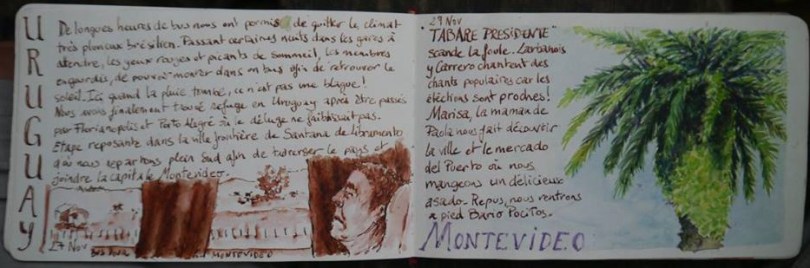 URUGUAY
De longues heures de bus nous ont permis de quitter le climat
très pluvieux brésilien. Passant certaines nuits dans les gares à
attendre, les yeux rouges et picants de sommeil, les membres
engourdis, de pouvoir monter dans un bus afin de retrouver le
soleil. Ici, quand la pluie tombe, ce n'est pas une blague!
Nous avons finalement trouvé refuge en Uruguay après être passés
par Florianopolis et Porto Alegre où le déluge ne faiblissait pas.
Etape reposante dans la ville frontière de Santana do Libramento
d'où nous repartons plein Sud afin de traverser le pays et
joindre la capitale Montevideo.
27 Nov
MONTEVIDEO
29 Nov
"TABARE PRESIDENTE"
scande la foule. Larbanois
y Carrero chantent des
chants populaires car les
éléctions sont proches!
Marisa, la maman de
Paola nous fait découvrir
la ville et le mercado
del Puerto où nous
mangeons un délicieux
asado. Repus, nous rentrons
a pied Bario Pocitos.
MONTEVIDEO